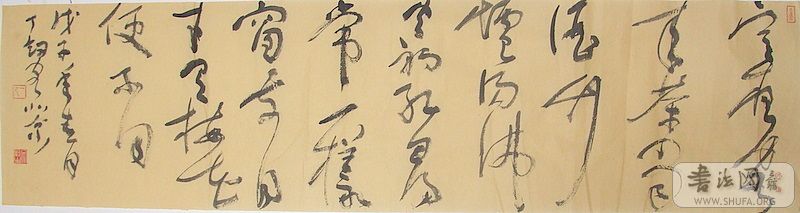 寒夜客
来茶当
酒竹
爐湯沸
火初紅尋
常一樣
窗前月
才有梅花
便不同
戊子年春月
北京
书法网
WWW.SHUFA.ORG